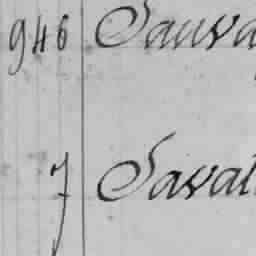 946 Sauva
7 Saval